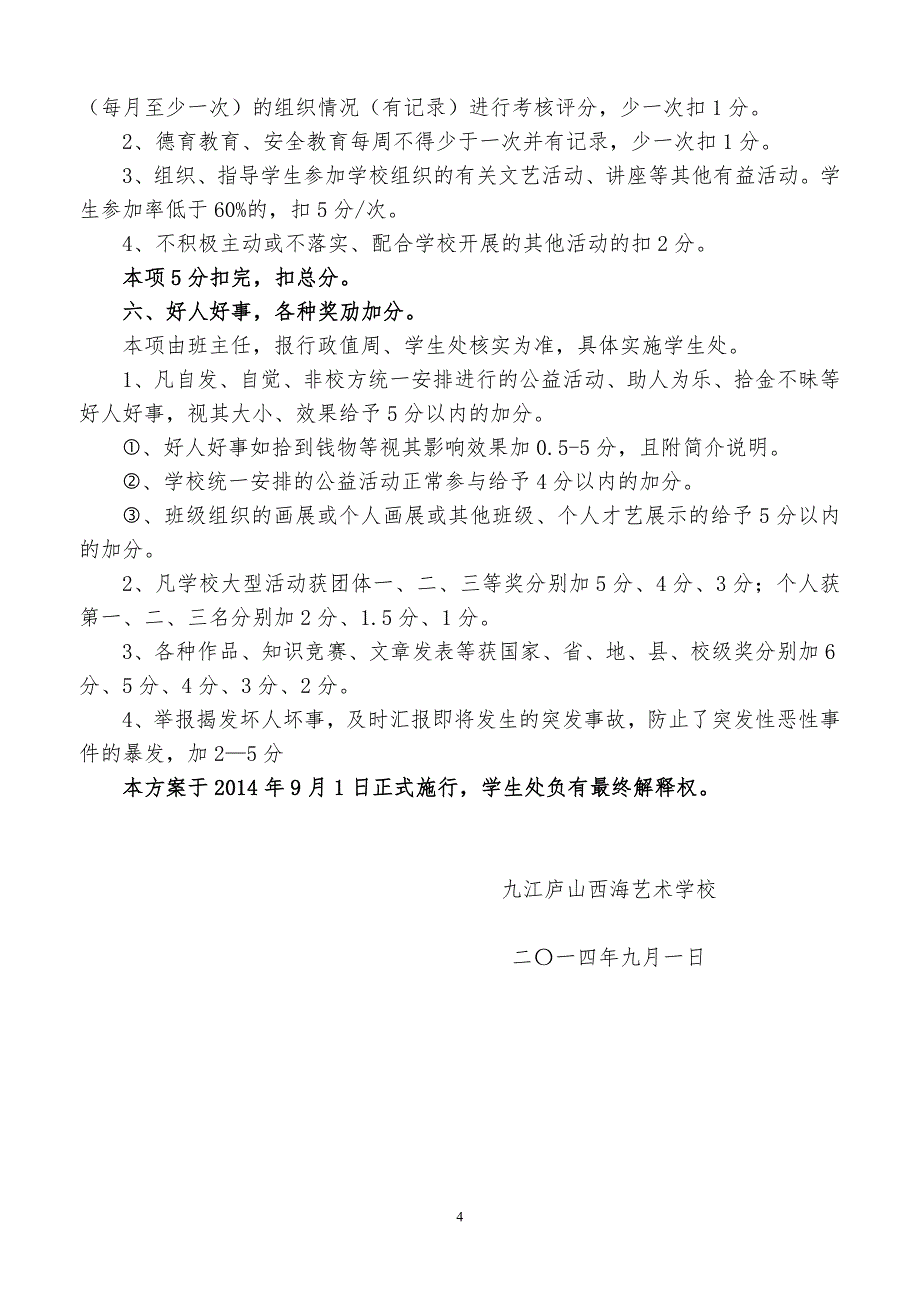 （每月至少一次）的组织情况（有记录）进行考核评分，少一次扣1分。
2、德育教育、安全教育每周不得少于一次并有记录，少一次扣1分。
3、组织、指导学生参加学校组织的有关文艺活动、讲座等其他有益活动。学
生参加率低于60%的，扣5分/次。
4、不积极主动或不落实、配合学校开展的其他活动的扣2分。
本项5分扣完，扣总分。
六、好人好事，各种奖劢加分。
本项由班主任，报行政值周、学生处核实为准，具体实施学生处。
1、凡自发、自觉、非校方统一安排进行的公益活动、助人为乐、拾金不昧等
好人好事，视其大小、效果给予5分以内的加分。
①、好人好事如拾到钱物等视其影响效果加0.5-5分，且附简介说明。
②、学校统一安排的公益活动正常参与给予4分以内的加分。
③、班级组织的画展或个人画展或其他班级、个人才艺展示的给予5分以内
的加分。
2、凡学校大型活动获团体一、二、三等奖分别加5分、4分、3分；个人获
第一、二、三名分别加2分、1.5分、1分。
3、各种作品、知识竞赛、文章发表等获国家、省、地、县、校级奖分别加6
分、5分、4分、3分、2分。
4、举报揭发坏人坏事，及时汇报即将发生的突发事故，防止了突发性恶性事
件的暴发，加2—5分
本方案于2014年9月1日正式施行，学生处负有最终解释权。
九江庐山西海艺术学校
二〇一四年九月一日
4